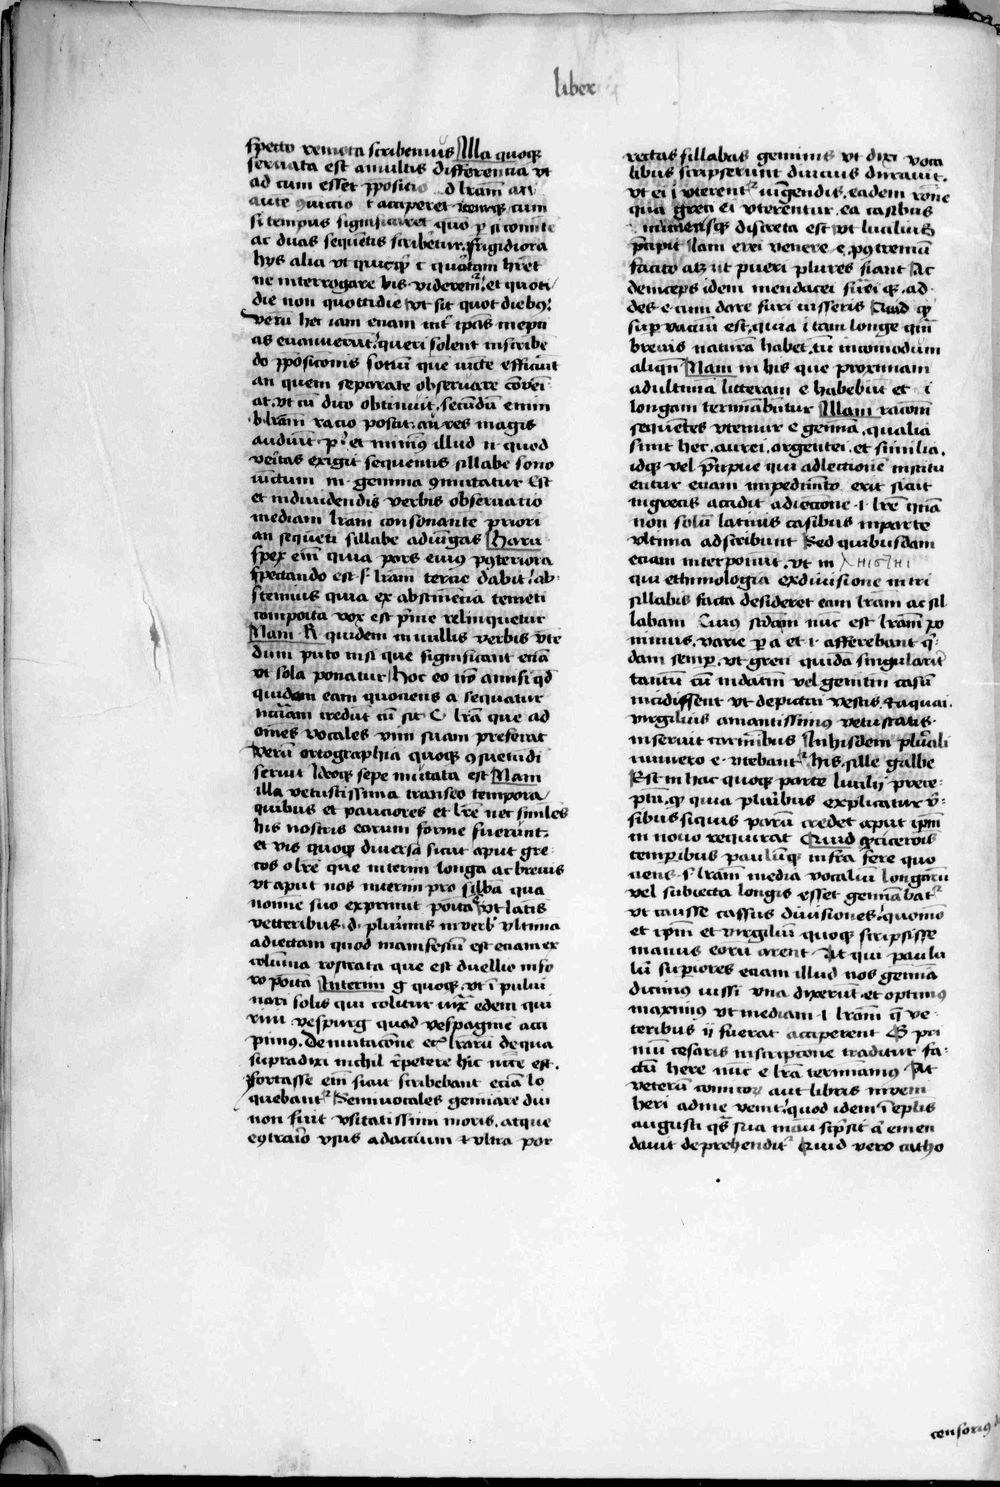 liber
specto remota scribemus Illa quoqꝫ
seruata est a multis differentia vt
ad cum esset ꝓpositio d lr̄am
aute t acciperet itemqꝫ cum
si tempus significaret quo ꝑ
ac duas sequentis scriberetur frigidiora
hys alia vt quicqꝫ c quartam hr̄et
ne interrogare bis videremꝰ et quoti
die non quottidie vt sit quot diebꝰ
verū hec iam etiam int̄ ip̄as inepti
as euanuerūt queri solent in scribe
do ꝓpositionis sonū que iuncte efficiunt
an quem separate obseruare cōueni
at vt cū dico obtinuit secūdū enim
b lr̄am racio poscit aures magis
audiūt p et minus illud n quod
veritas exigit sequentis sillabe sono
uictum m gemina ꝯmutatur Est
et in diuidendis verbis obseruatio
mediam lr̄am consonantē priori
an sequēti sillabe adiūgas Harū
spex eni quia pars eius posteriora
spectando est s lr̄am tercie dabitᵘʳ ab
stemius quia ex abstinēcia temeti
composita vox est prime relinquetur
Nam k quidem in nullis verbis vtē
dum puto nisi que significant etiā
vt sola ponatur Hoc eo nō amisi qd
quidam eam quociens a sequatur
necessariam credūt cū sit C lr̄a que ad
omēs vocales vim suam preferat
Verū ortographia quoqꝫ ꝯsuetudi
seruit Ideoqꝫ sepe mutata est Nam
illa vetustissima transeo tempora
quibus et pauciores et lr̄e nec similes
his nostris earum forme fuerūnt
et vis quoqꝫ diuersa sicut aput gre
cos o lr̄e que interim longa ac breuis
vt aput nos interim pro sillaba qua
nomine suo exprimit ponitᵘʳ vt latīs
vetteribus d plurimis in verbis vltima
adiectam quod manifestū est etiam ex
colūna rostrata que est duellio in fo
ro posita Interim g quoqꝫ vt ī pului
nari solis qui colitur iuxta edem qui
rini vesperug quod vespagine acci
pimꝰ De mutacōne etiā lr̄arū de qua
supradixi nichil repetere hic necesse est
fortasse eni sicut scribebant etiā lo
quebantᵘʳ Semiuocales gemīare diu
non fuit vsitatissimi moris atque
econtrario vsus ad accium et vltra por
rectas sillabas geminis vt dixi voca
libus scripserunt diucius durauit
vt ei vterentᵘʳ iūgendis eadem ratione
qua greci ei vterentur ea casibus
numerisqꝫ discreta est vt lucilius
p̄cipit Iam erei venere e postremū
facito atqꝫ ut pueri plures fiant Ac
deinceps idem mendacei furei qꝫ ad
des e cum dare furi iusseris Quid qꝫ
superuacuū est quia i tam longe quā
breuis naturā habet tū incomodum
aliqn̄ Nam in his que proximam
ad ultima litteram e habebūt et i
longam terminabuntur Illam raconē
sequētes vtemur e gemina qualia
sunt hec aurei argentei et similia
idqꝫ vel p̄cipue qui ad lectionē institu
entur etiam impedimēto erit sicut
in grecis accidit adiectione i lr̄e quā
non solū latiuis casibus in parte
vltima adscribunt Sed quibusdam
etiam interponūt vt in ΛΗΙΣΤΗΙ
qui ethimologia ex diuisione in tri
sillabis facta desideret eam lr̄am ac sil
labam Cuius secūdam nūc est lr̄am po
nimus varie per a et i afferebant quē
dam semper vt greci quidā singularit
tantū cū in datiū vel genitiū casū
incidissent vt de pictai vestis et aquai
virgilius amantissimus vetustatis
inseruit carmibus In hisdem plurali
numero e vtebantᵘʳ his sille galbe
Est in hac quoqꝫ parte lucilij prece
ptū qꝫ quia pluribus explicatur v̄
sibus siquis parū credet aput ipsū
in nouo requirat Quid qꝫ ciceronis
temporibus paulūqꝫ infra fere quo
ciens s lr̄am media vocaliū longarū
vel subiecta longis esset geminabatᵘʳ
vt causse cassus diuisiones quomō
et ipm̄ et virgiliū quoqꝫ scripsisse
manus eorū docent At qui paulu
lū supiores etiam illud nos geminā
dicimꝰ iussi vna dixerūt et optimꝰ
maximꝰ vt mediam i lr̄am que ve
teribus ij fuerat acciperent
mū cesaris inscriptione traditur fa
ctū here nūc e lr̄a terminamꝰ At
veterū comicorū aut libris inueni
heri ad me venit quod idem ī ep̄lis
augusti qs̄ sua manu scripsit aut emen
dauit deprehenditᵘʳ Quid vero catho
censorius